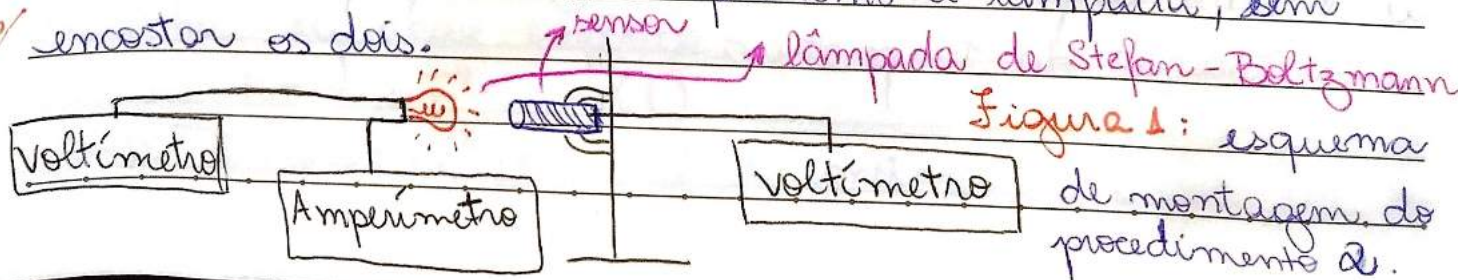 lâmpada, sem
encostar os dois.
sensor
lâmpada de Stefan-Boltzmann
Figura 1: esquema
de montagem do
procedimento 2.
voltímetro
Amperímetro
voltímetro